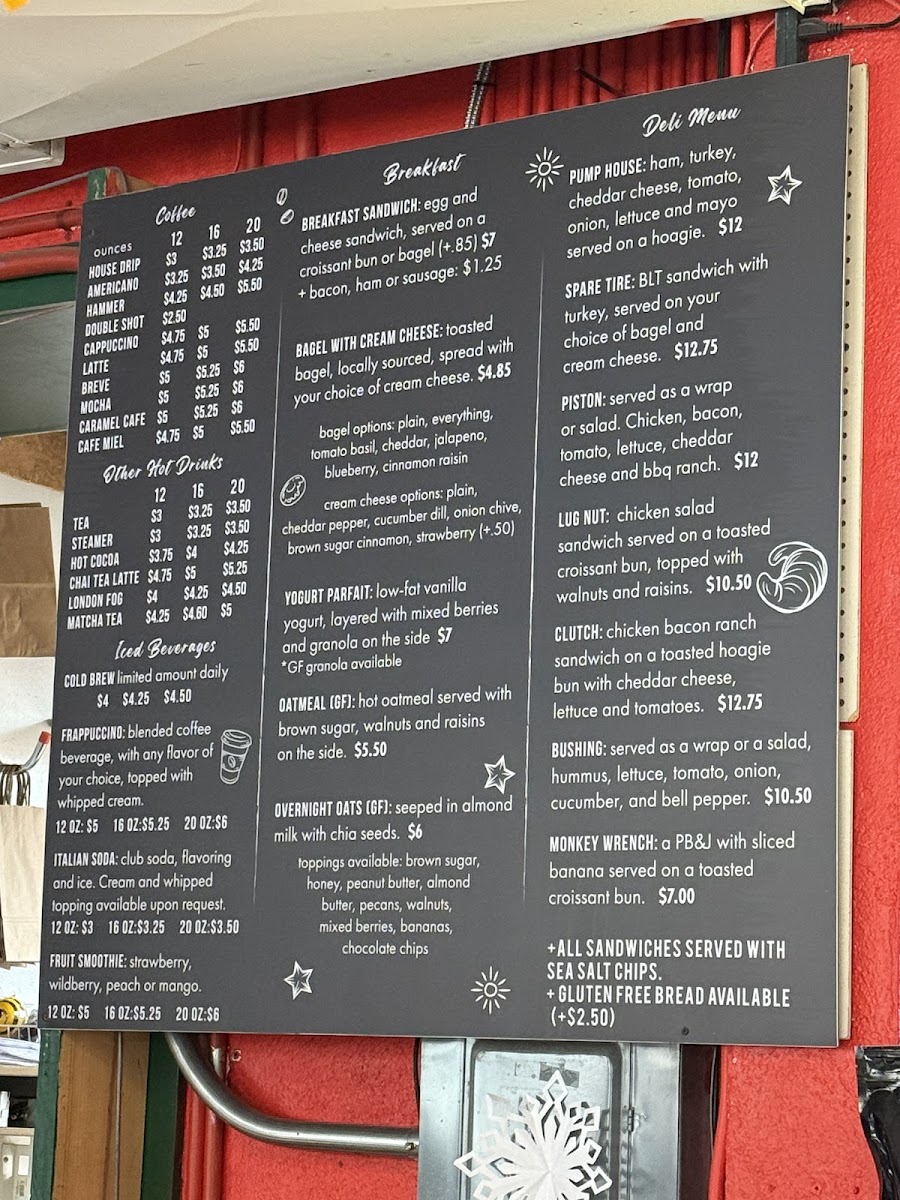 Coffee
ounces 12 16 20
HOUSE DRIP $3 $3.25 $3.50
AMERICANO $3.25 $3.50 $4.25
HAMMER $4.25 $4.50 $5.50
DOUBLE SHOT $2.50
CAPPUCCINO $4.75 $5 $5.50
LATTE $4.75 $5 $5.50
BREVE $5 $5.25 $6
MOCHA $5 $5.25 $6
CARAMEL CAFE $5 $5.25 $6
CAFE MIEL $4.75 $5 $5.50
Other Hot Drinks
12 16 20
TEA $3 $3.25 $3.50
STEAMER $3 $3.25 $3.50
HOT COCOA $3.75 $4 $4.25
CHAI TEA LATTE $4.75 $5 $5.25
LONDON FOG $4 $4.25 $4.50
MATCHA TEA $4.25 $4.60 $5
Iced Beverages
COLD BREW limited amount daily
$4 $4.25 $4.50
FRAPPUCCINO: blended coffee
beverage, with any flavor of
your choice, topped with
whipped cream.
12 OZ: $5 16 OZ:$5.25 20 OZ:$6
ITALIAN SODA: club soda, flavoring
and ice. Cream and whipped
topping available upon request.
12 OZ: $3 16 OZ:$3.25 20 OZ:$3.50
FRUIT SMOOTHIE: strawberry,
wildberry, peach or mango.
12 OZ: $5 16 OZ:$5.25 20 OZ:$6
Breakfast
BREAKFAST SANDWICH: egg and
cheese sandwich, served on a
croissant bun or bagel (+.85) $7
+ bacon, ham or sausage: $1.25
BAGEL WITH CREAM CHEESE: toasted
bagel, locally sourced, spread with
your choice of cream cheese. $4.85
bagel options: plain, everything,
tomato basil, cheddar, jalapeno,
blueberry, cinnamon raisin
cream cheese options: plain,
cheddar pepper, cucumber dill, onion chive,
brown sugar cinnamon, strawberry (+.50)
YOGURT PARFAIT: low-fat vanilla
yogurt, layered with mixed berries
and granola on the side $7
*GF granola available
OATMEAL (GF): hot oatmeal served with
brown sugar, walnuts and raisins
on the side. $5.50
OVERNIGHT OATS (GF): seeped in almond
milk with chia seeds. $6
toppings available: brown sugar,
honey, peanut butter, almond
butter, pecans, walnuts,
mixed berries, bananas,
chocolate chips
Deli Menu
PUMP HOUSE: ham, turkey,
cheddar cheese, tomato,
onion, lettuce and mayo
served on a hoagie. $12
SPARE TIRE: BLT sandwich with
turkey, served on your
choice of bagel and
cream cheese. $12.75
PISTON: served as a wrap
or salad. Chicken, bacon,
tomato, lettuce, cheddar
cheese and bbq ranch. $12
LUG NUT: chicken salad
sandwich served on a toasted
croissant bun, topped with
walnuts and raisins. $10.50
CLUTCH: chicken bacon ranch
sandwich on a toasted hoagie
bun with cheddar cheese,
lettuce and tomatoes. $12.75
BUSHING: served as a wrap or a salad,
hummus, lettuce, tomato, onion,
cucumber, and bell pepper. $10.50
MONKEY WRENCH: a PB&J with sliced
banana served on a toasted
croissant bun. $7.00
+ALL SANDWICHES SERVED WITH
SEA SALT CHIPS.
+ GLUTEN FREE BREAD AVAILABLE
(+$2.50)